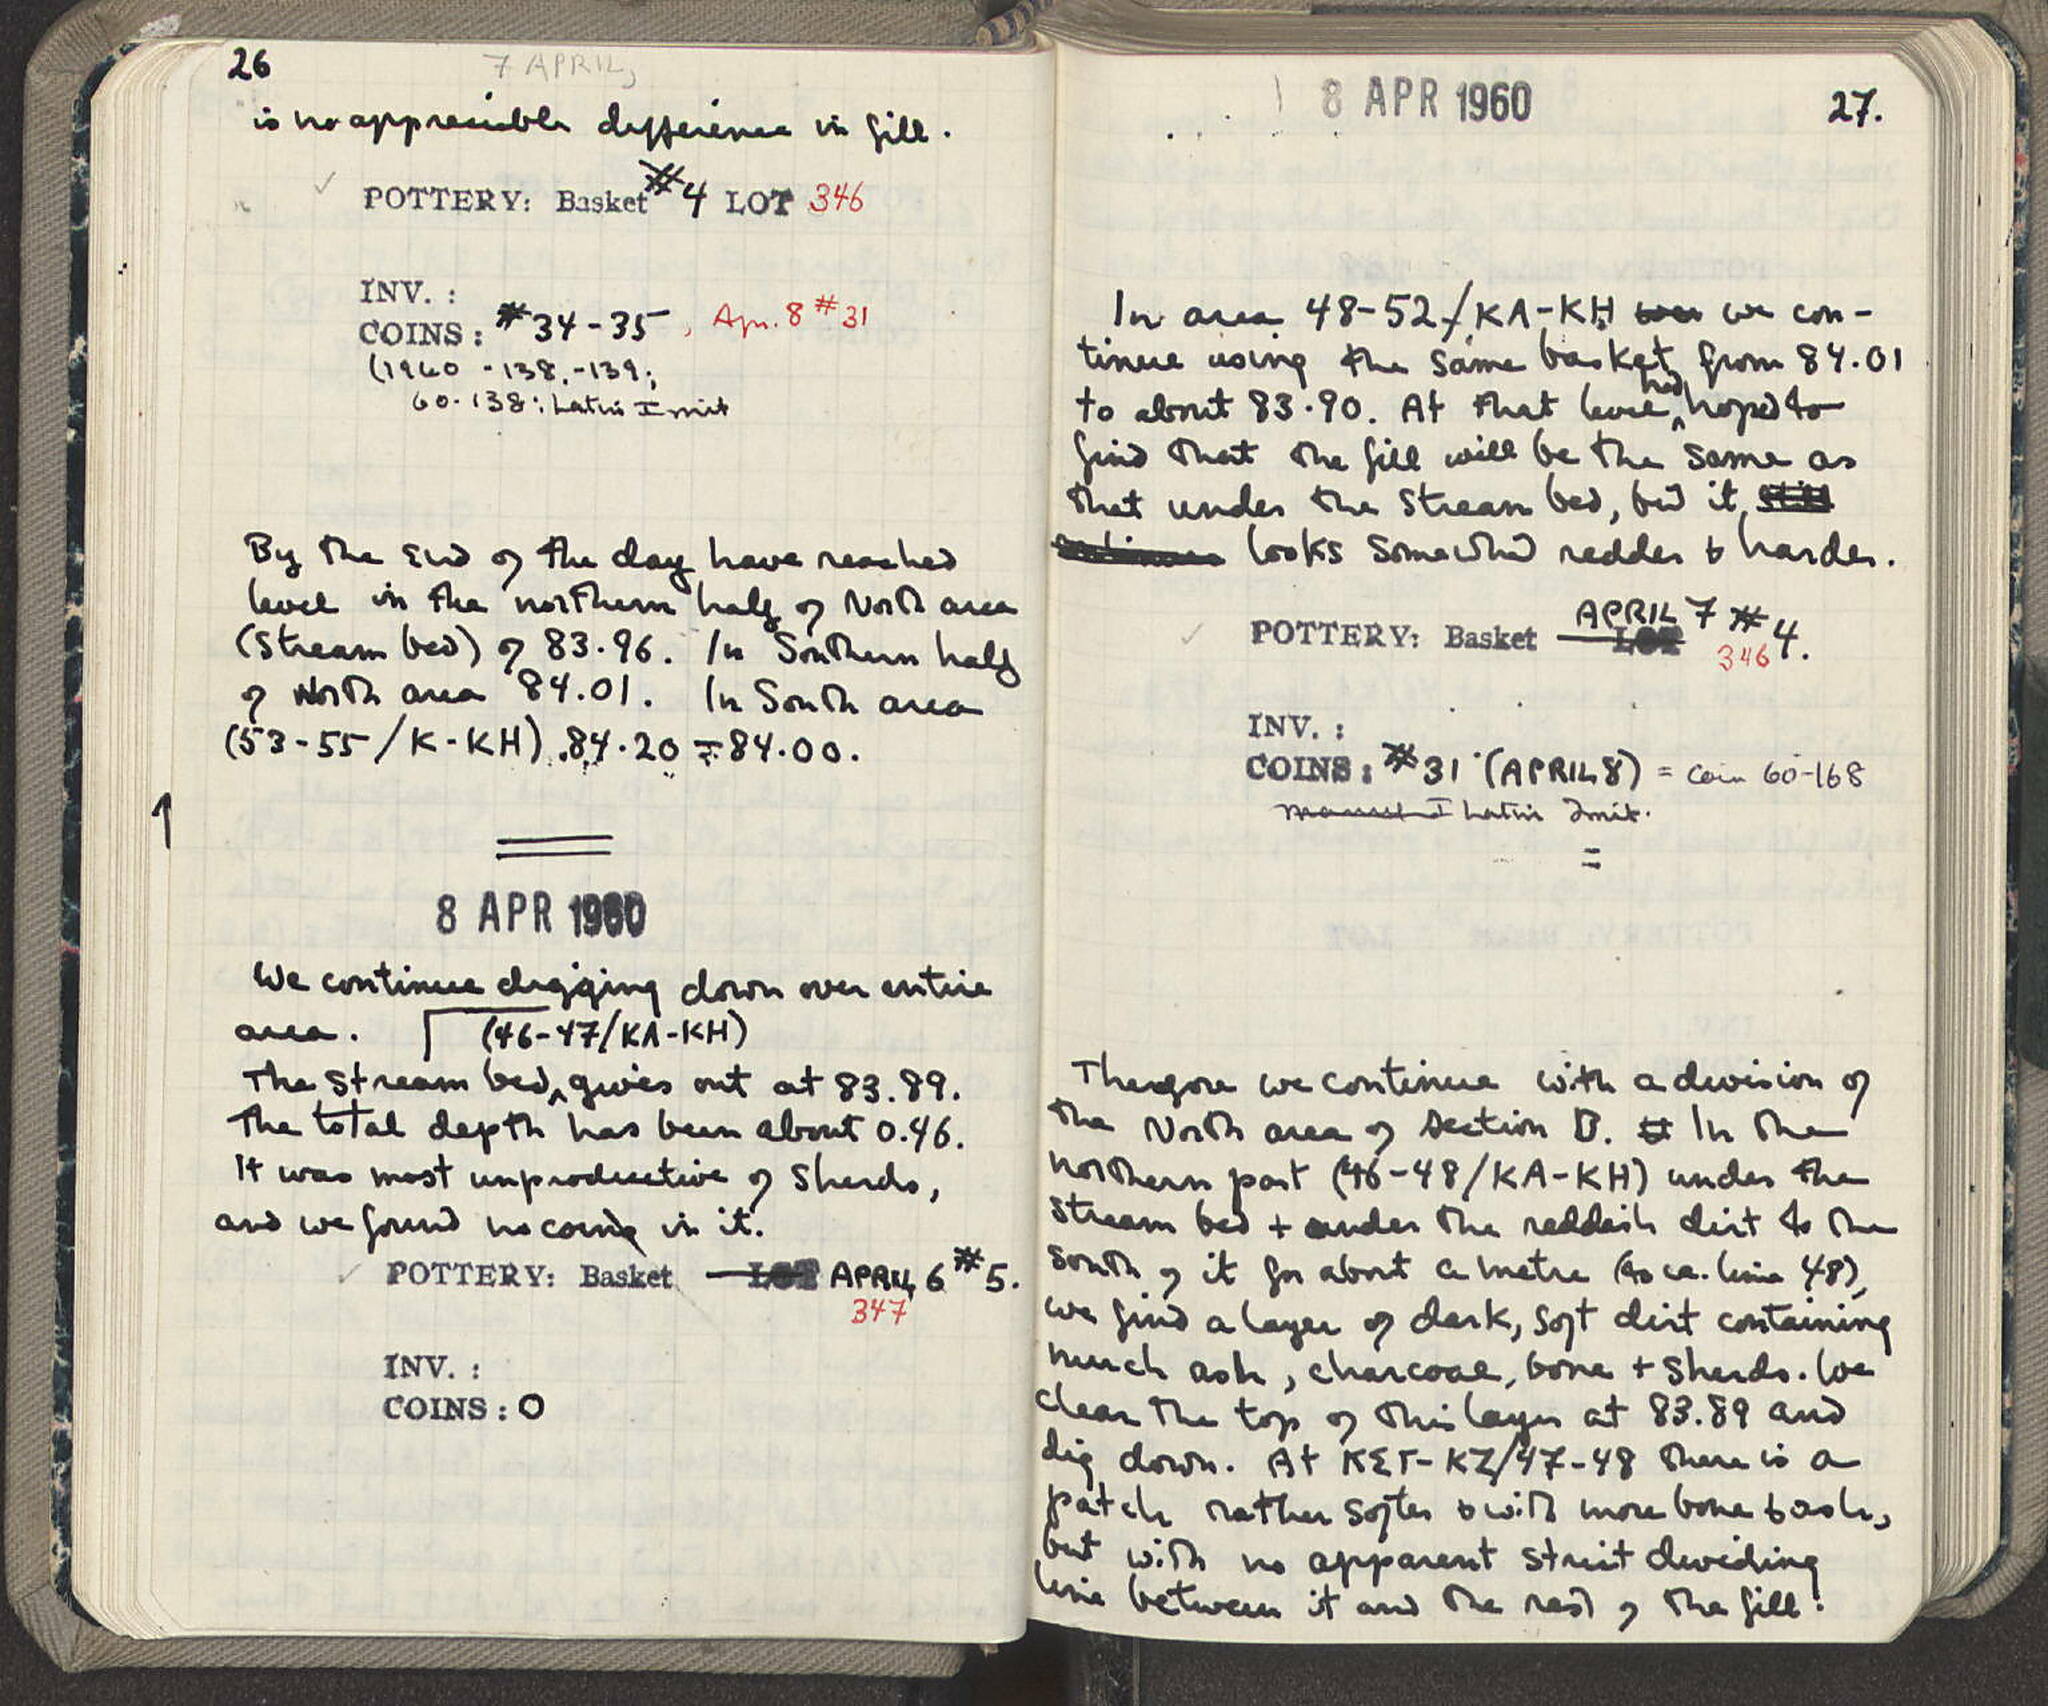 26
7 APRIL,
is no appreciable difference in fill.
POTTERY: Basket #4 LOT 346
INV. :
COINS: #34-35, Apr. 8 #31
(1960 -138, -139;
60-138: Latin Imit
By the end of the day have reached
level in the northern half of North area
(stream bed) of 83.96. In Southern half
of North area 84.01. In South area
(53-55/K-KH) 84.20 - 84.00.
8 APR 1960
We continue digging down over entire
area. (46-47/KA-KH)
The stream bed gives out at 83.89.
The total depth has been about 0.46.
It was most unproductive of sherds,
and we found no coins in it.
POTTERY: Basket LOT APRIL 6 #5.
347
INV. :
COINS: 0
8 APR 1960
27.
In area 48-52/KA-KH we con-
tinue using the same basket from 84.01
to about 83.90. At that level had hoped to
find that the fill will be the same as
that under the stream bed, but it still
continues looks somewhat redder & harder.
APRIL 7 #4.
POTTERY: Basket LOT 346
INV. :
COINS: #31 (APRIL 8) = coin 60-168
Manuel I Latin Imit.
=
Therefore we continue with a division of
the North area of Section D. In the
northern part (46-48/KA-KH) under the
stream bed + under the reddish dirt to the
south of it for about a metre (to ca. line 48),
we find a layer of dark, soft dirt containing
much ash, charcoal, bone + sherds. We
clear the top of this layer at 83.89 and
dig down. At KΣT-KZ/47-48 there is a
patch rather softer & with more bone & ash,
but with no apparent strict dividing
line between it and the rest of the fill.